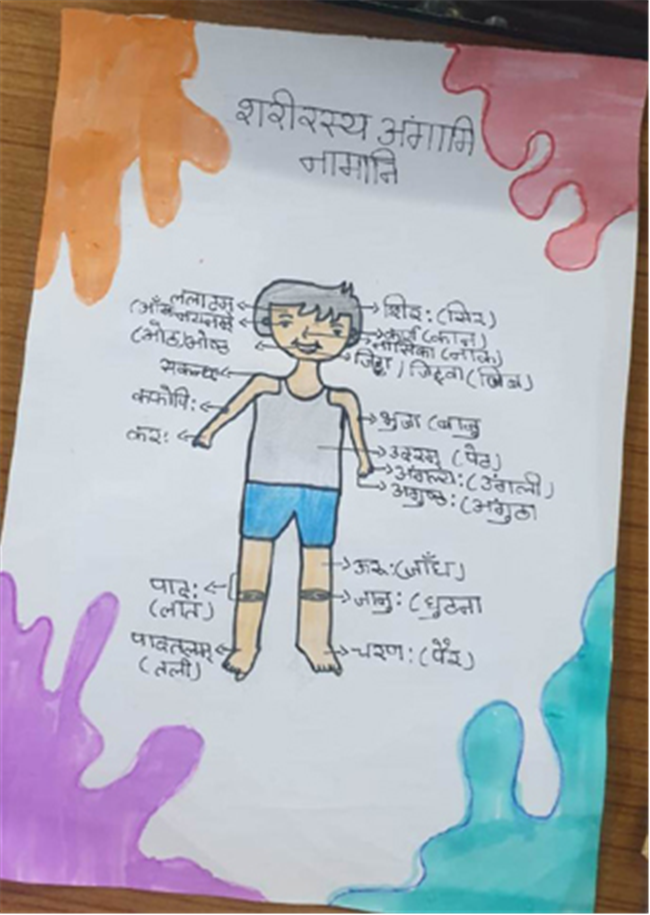 शरीरस्य अंगामि
नामानि
ललाटम्
(आँख नयनम्
(ओठ) ओष्ठ
कफोपि:
कर:
पाद:
(लात)
पादतलम्
(तली)
शिर: (सिर)
कर्ण (कान)
नासिका (नाक)
जिह्वा (जिभ)
भुजा (बाजु
उदरम् (पेट)
अंगल्य: (उंगली)
अगुष्ठ: (अंगुठा
ऊरू: (जाँघ)
जानु: (घुटना
चरण: (पैर)